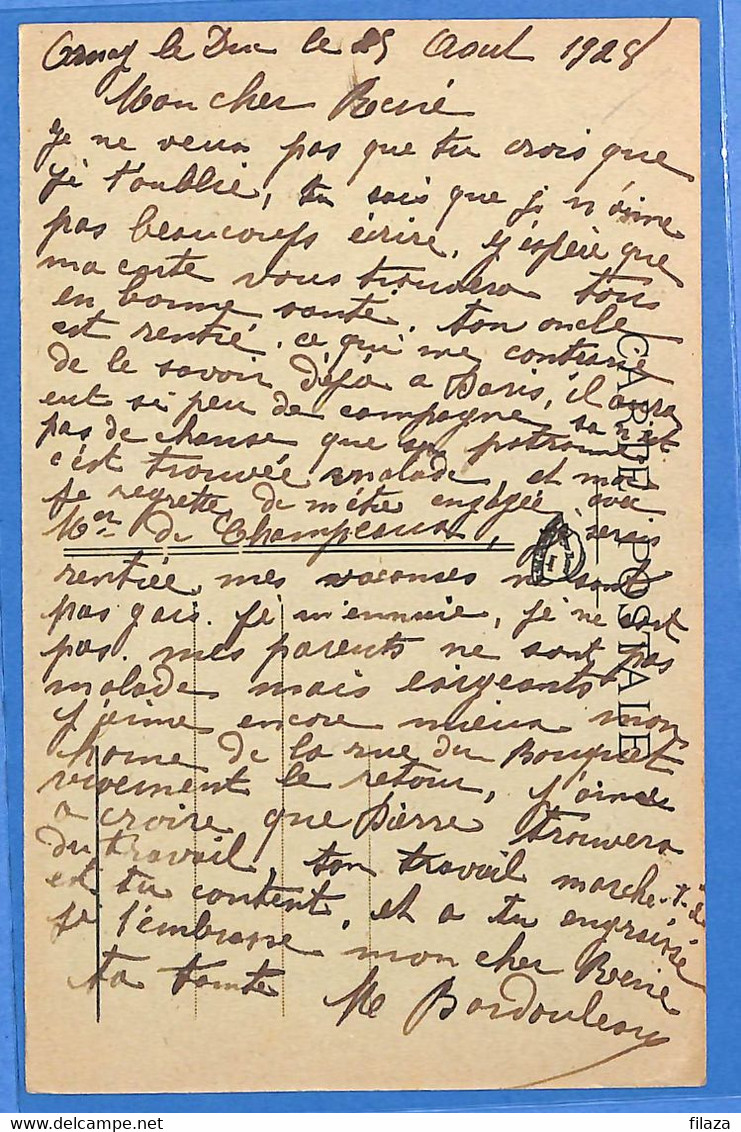 Arnay le Duc le 25 Aout 1928
Mon cher René
Je ne veux pas que tu crois que
je t'oublie, tu sais que je n'aime
pas beaucoups écrire, j'espère que
ma carte vous trouvera tous
en bonne santé, ton oncle
est rentré, ce qui me contrarie
de le savoir déjà a Paris, il aura
eut si peu de campagne, sa n'est
pas de chanse que sa patronne
c'est trouvée malade, et moi
je regrette de m'être engagée avec
Mer de Champeaux, je serais
rentrée mes vacanses ne sont
pas gais. je m'ennuie, je ne sort
pas. mes parents ne sont pas
malade mais exigeants
j'aime encore mieux mon
home de la rue du Bouquet
vivement le retour, j'aime
a croire que Pierre trouvera
du travail, ton travail marche-t-il
est tu content, et a tu engraissé
je t'embrasse mon cher René
ta tante M Bardouleau
CARTE POSTALE
Uploader: filaza
delcampe.net